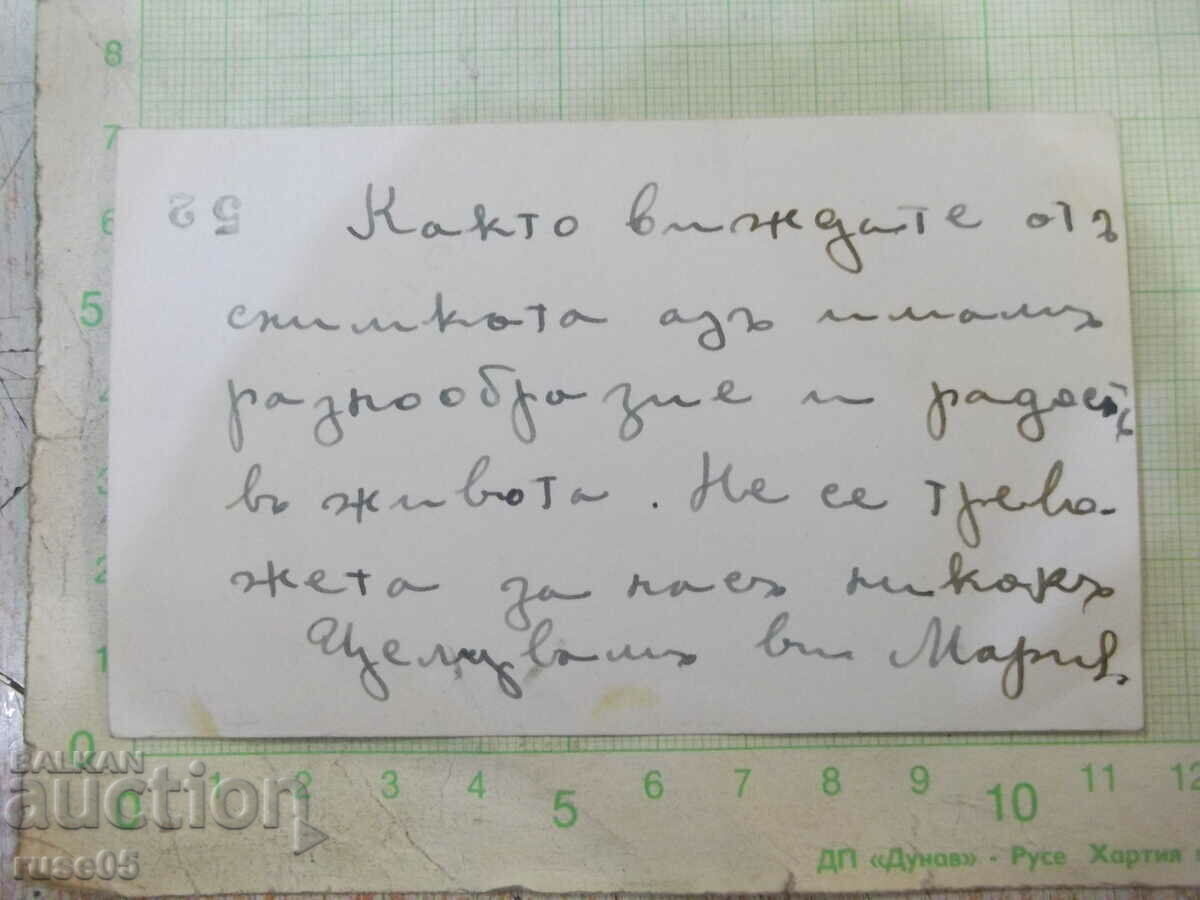 52
Както виждате отъ
снимката азъ имамъ
разнообразие и радость
въ живота. Не се трево-
жета за насъ никакъ
Целувамъ ви Мария
8
7
6
5
2
1
0
BALKAN
auction
ruse05
0 1 2 3 4 5 6 7 8 9 10 11 12
ДП «Дунав» - Русе Хартия